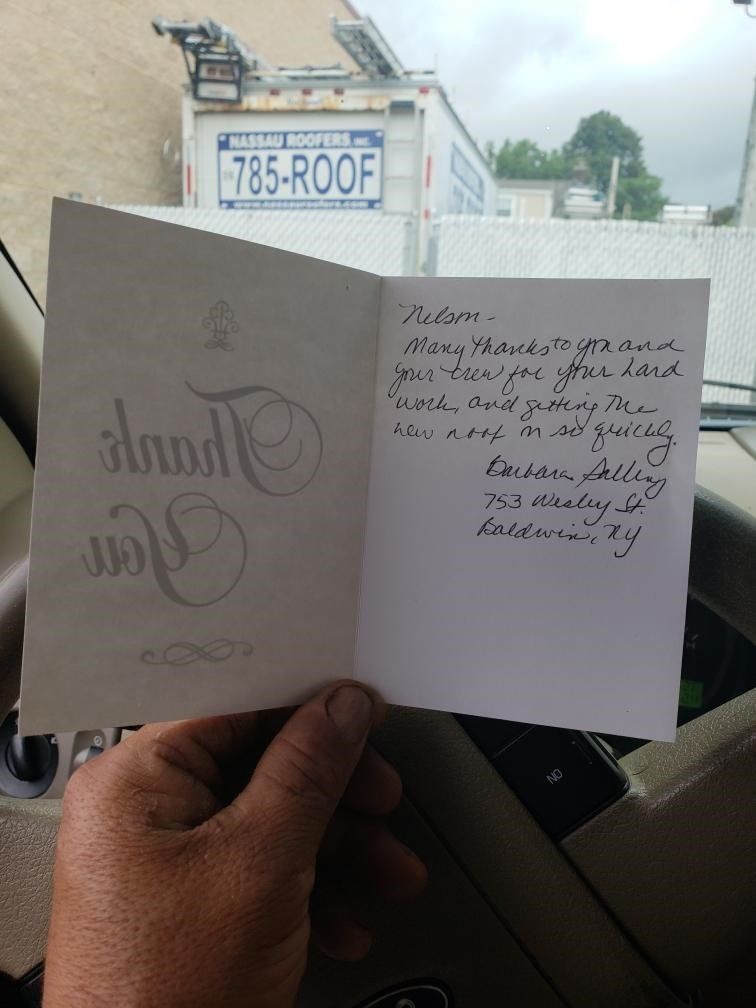 NASSAU ROOFERS INC.
785-ROOF
www.nassauroofers.com
Thank
You
Nelson -
Many thanks to you and
your crew for your hard
work, and getting the
new roof on so quickly.
Barbara
753 Wesley St.
Baldwin, NY
NO